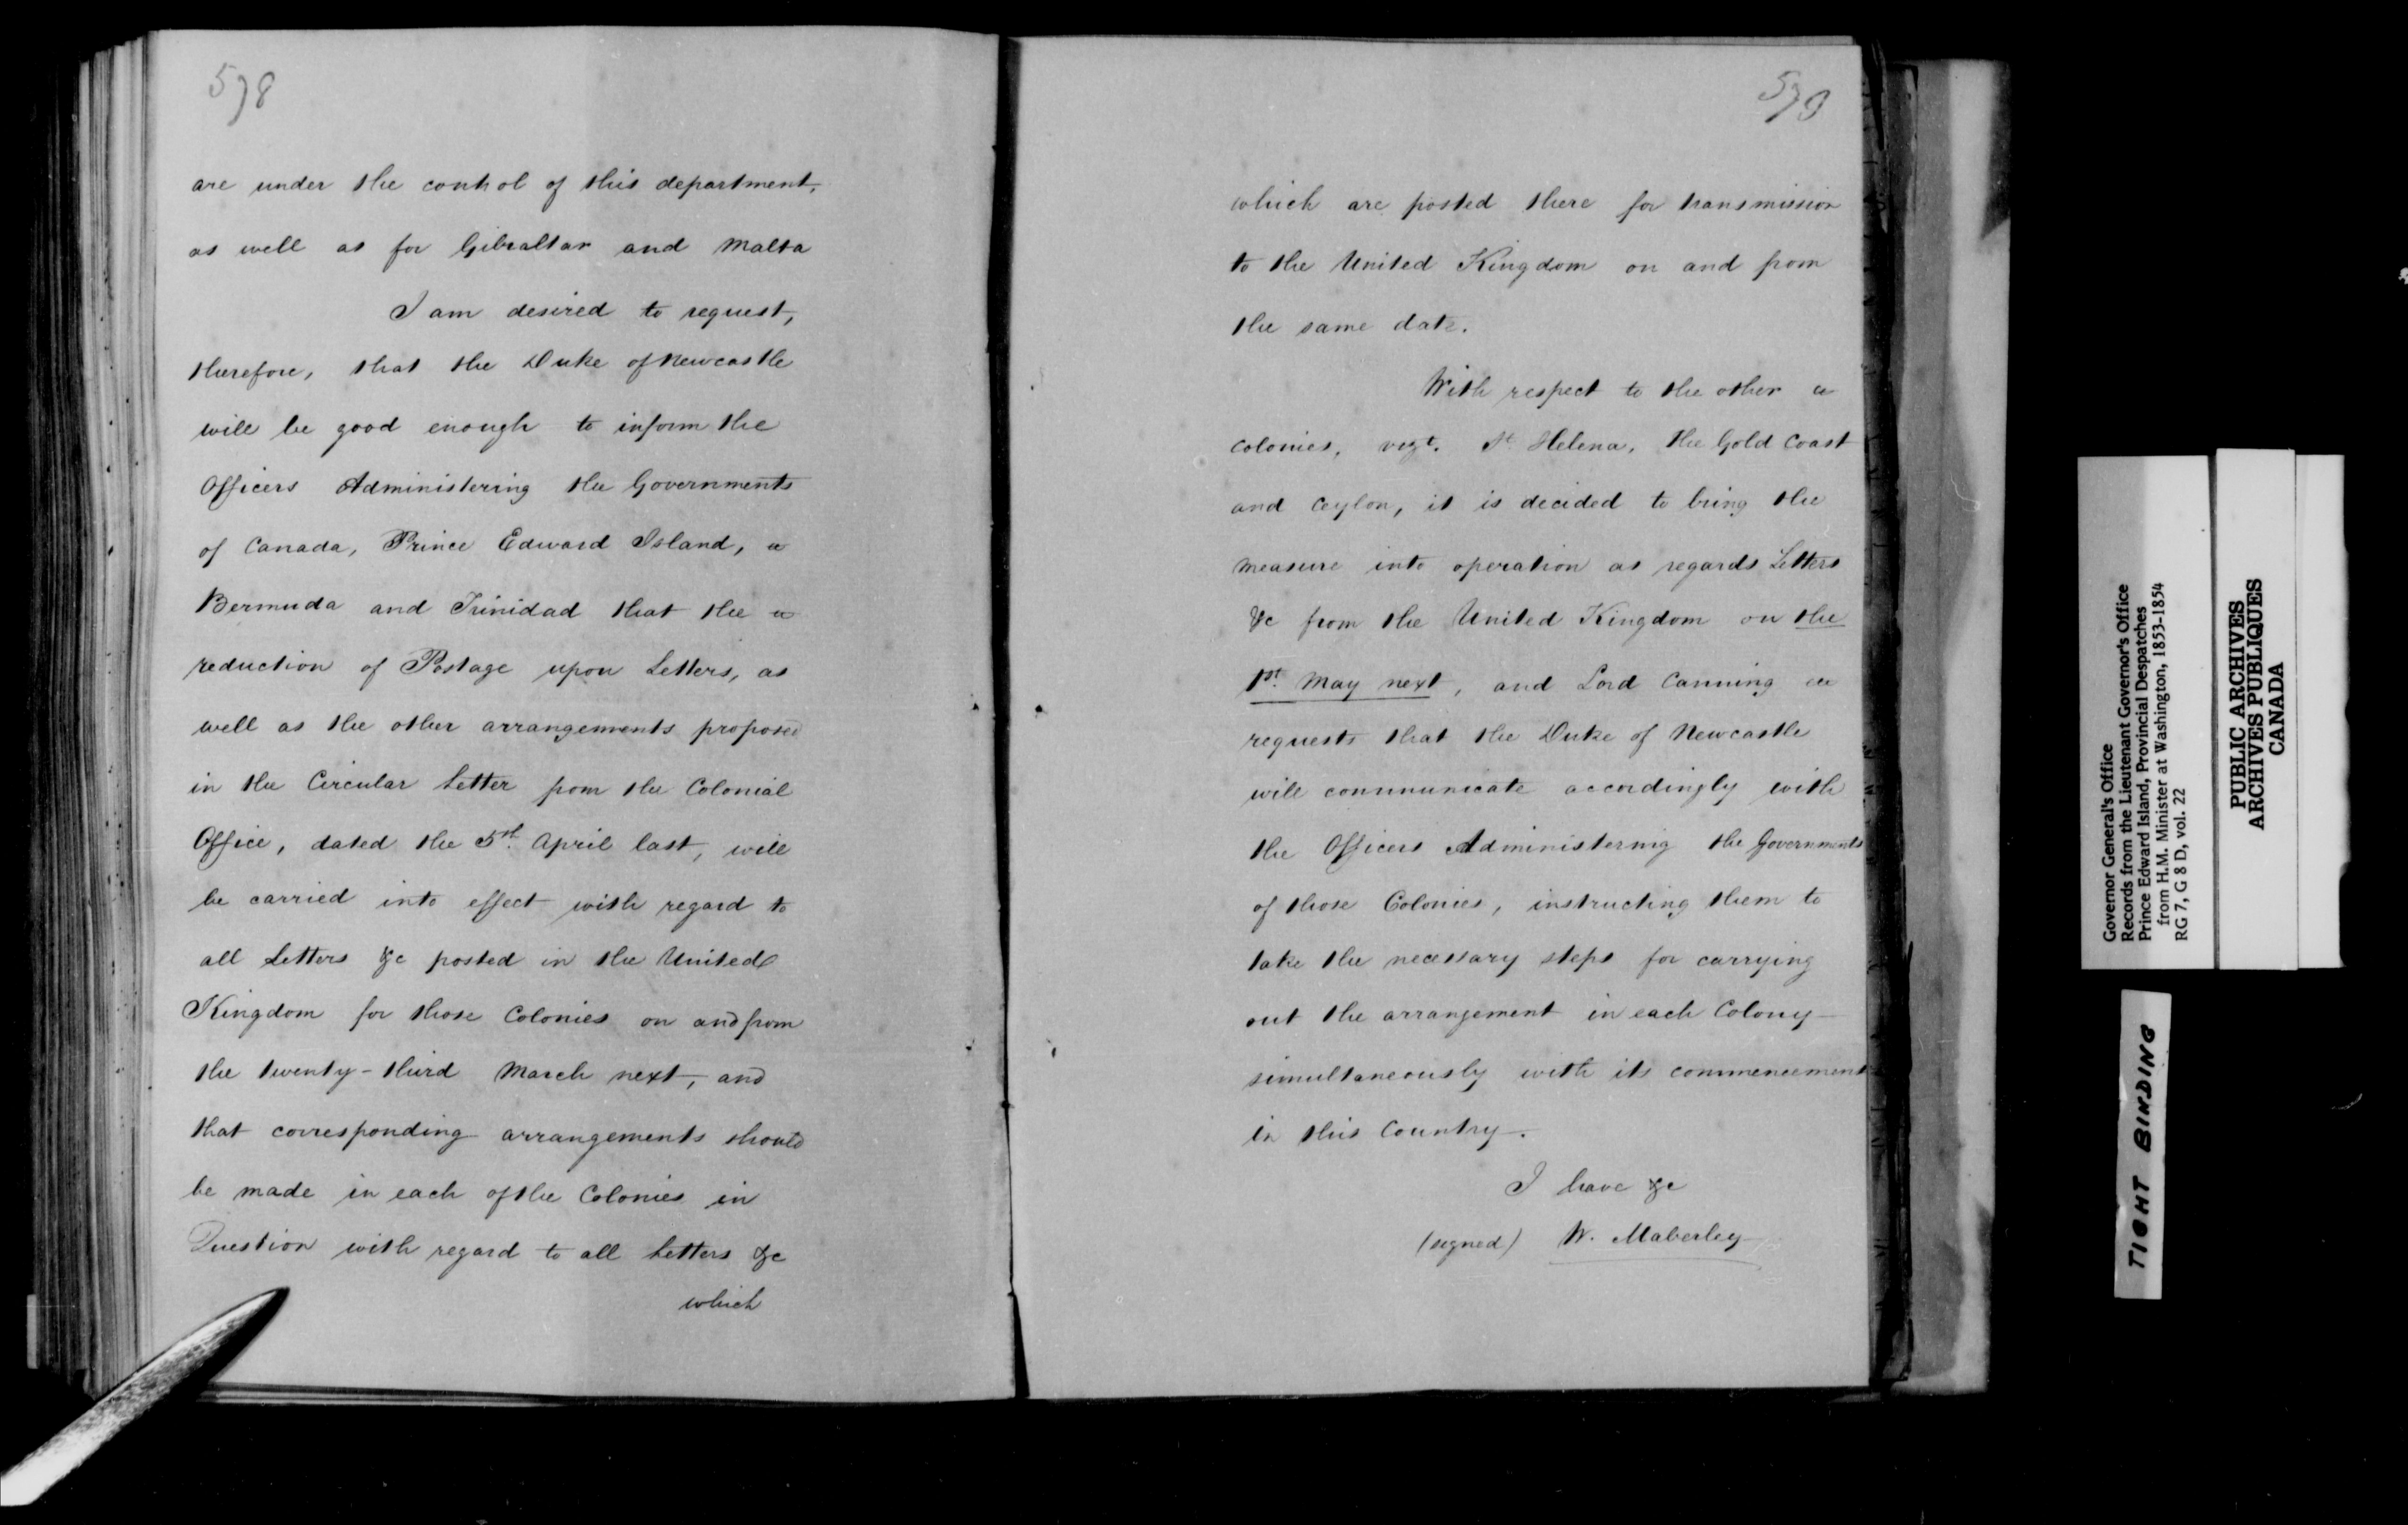 578
are under the control of this department,
as well as for Gibraltar and Malta
I am desired to request,
therefore, that the Duke of Newcastle
will be good enough to inform the
Officers Administering the Governments
of Canada, Prince Edward Island,
Bermuda and Trinidad that the
reduction of Postage upon Letters, as
well as the other arrangements proposed
in the Circular Letter from the Colonial
Office, dated the 5th. April last, will
be carried into effect with regard to
all Letters &c posted in the United
Kingdom for those Colonies on and from
the twenty-third March next, and
that corresponding arrangements should
be made in each of the Colonies in
Question with regard to all Letters &c
which
579
which are posted there for transmission
to the United Kingdom on and from
the same date.
With respect to the other
colonies, vizt. St Helena, the Gold Coast
and Ceylon, it is decided to bring the
measure into operation as regards Letters
&c from the United Kingdom on the
1st. May next, and Lord Canning
requests that the Duke of Newcastle
will communicate accordingly with
the Officers Administering the Governments
of those Colonies, instructing them to
take the necessary steps for carrying
out the arrangement in each Colony
simultaneously with its commencement
in this Country.
I have &c
(signed) W. Maberley
Governor General's Office
Records from the Lieutenant Governor's Office
Prince Edward Island, Provincial Despatches
from H.M. Minister at Washington, 1853-1854
RG 7, G 8 D, vol. 22
PUBLIC ARCHIVES
ARCHIVES PUBLIQUES
CANADA
TIGHT BINDING